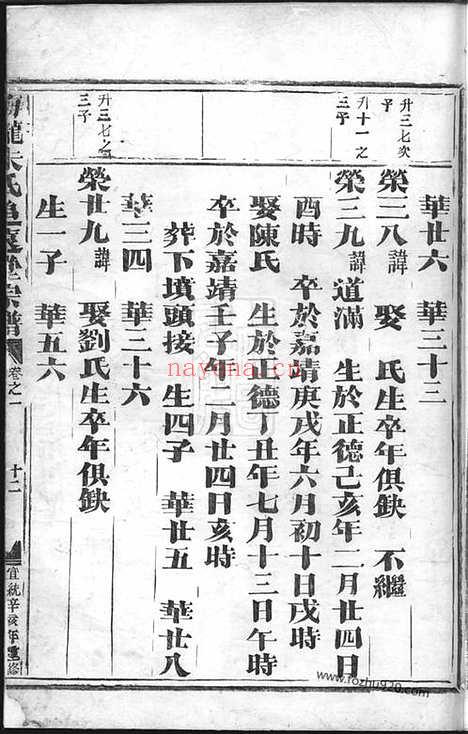 華廿六 華三十三
升三七次子
榮三八諱 娶 氏生卒年俱缺 不繼
升十一之三子
榮三九諱道滿 生於正德己亥年二月廿四日
酉時 卒於嘉靖庚戌年六月初十日戌時
娶陳氏 生於正德丁丑年七月十三日午時
卒於嘉靖壬子年二月廿四日亥時
葬下墳頭接 生四子 華廿五 華廿八
華三四 華三十六
升三七之三子
榮廿九諱 娶劉氏生卒年俱缺
生一子 華五六
龍朱氏 宗譜 卷之一 十二 宣統辛亥年重修
nayena.cn
www.fozhu920.com